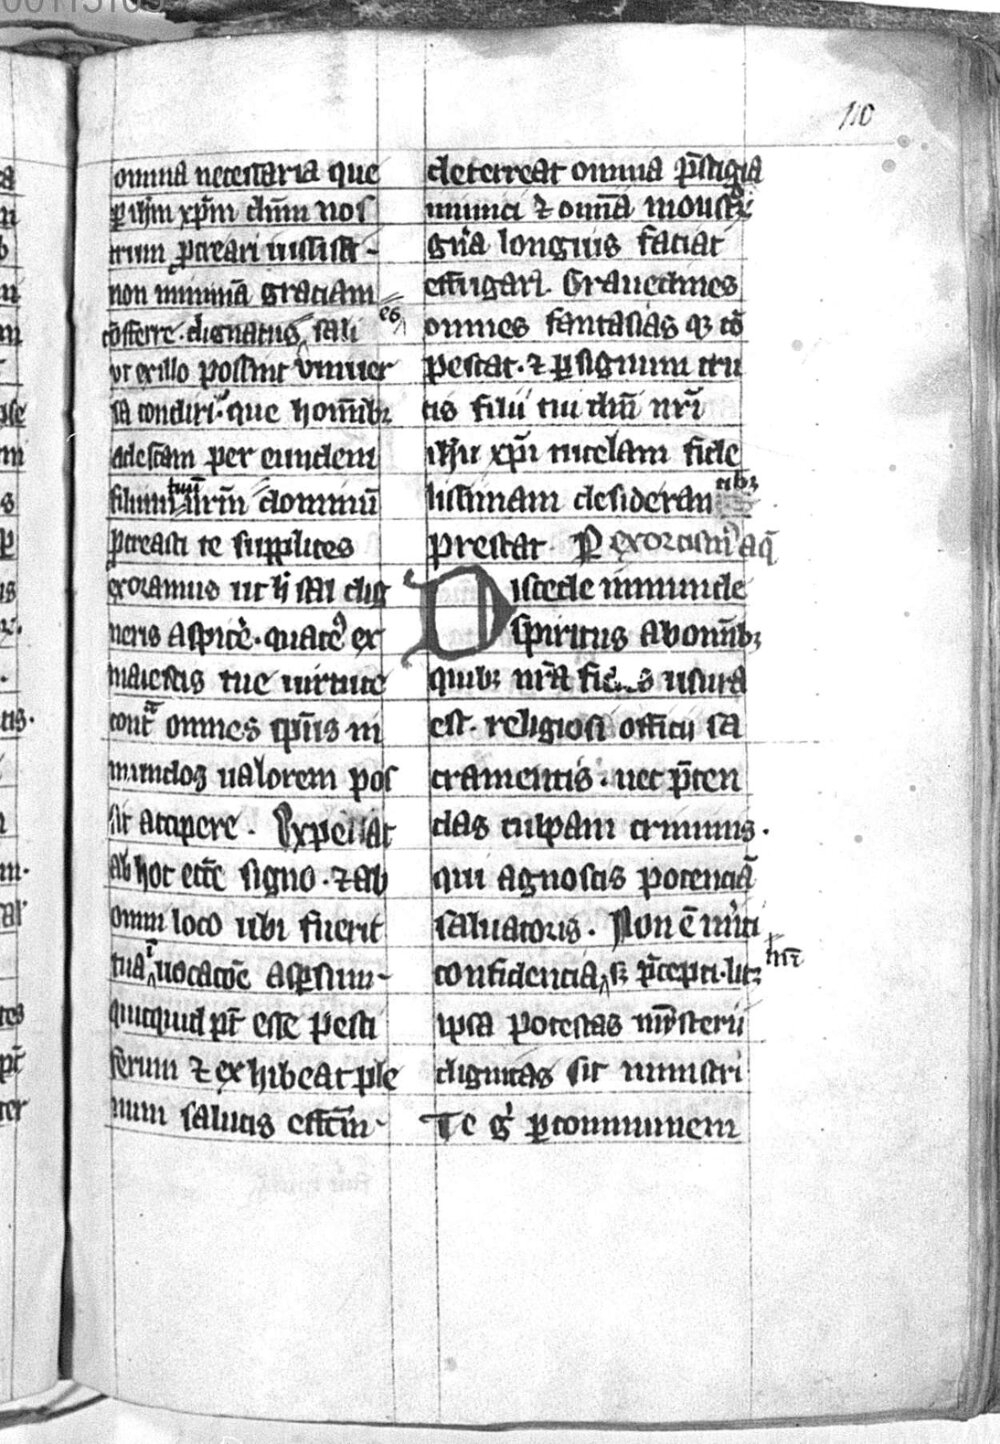 110
omnia necessaria que
ꝑ ihm̅ xp̅m dn̅m nos
trum ꝓcreari iussisti-
non minimā graciam
cōferre. dignatus es sali
vt ex illo possint vniuer
sa condiri. que hom̅ibꝫ
ad escam per eundem
filium tuū nr̅m dominū
ꝓcreasti te supplices
exoramus ut h̅ sal dig
neris aspic̅e. quat̅ꝰ ex
maiestatis tue uirtute
cont̅ᵃ omnes sp̅us in
mundos ualorem pos
sit accipere. Expellat
ab hoc ecc̅e signo. ⁊ ab
omni loco ubi fuerit
tua ī uocacōe asꝑsum-
quicquid pt̅ esse pesti
ferum ⁊ exhibeat ple
num salutis eff̅cm-
deterreat omnia p̅stigia
inimici ⁊ omīa monstroꝝ
gn̅a longius faciat
effugari. Grauedines
omnes fantasias qꝫ cō
pescat. ⁊ ꝑ signum cru
cis filii tui dn̅i nr̅i
ih̅u xp̅i tutelam fide
lissimam desideran tibꝫ
prestat. P̲ exorcismꝰ aq̅
Discede inmunde
spiritus ab om̅ibꝫ
quibꝫ nr̅a fides usura
est. religiosi officii sa
cramentis. nec p̅ten
das culpam criminis.
qui agnoscis potenciā
saluatoris. Non ē in m̅iti
confidencia, sꝫ p̅cepti. licꝫ hn̅t
ipsa potestas mysterii
dignitas sit ministri
Te gͥ ꝑ communem